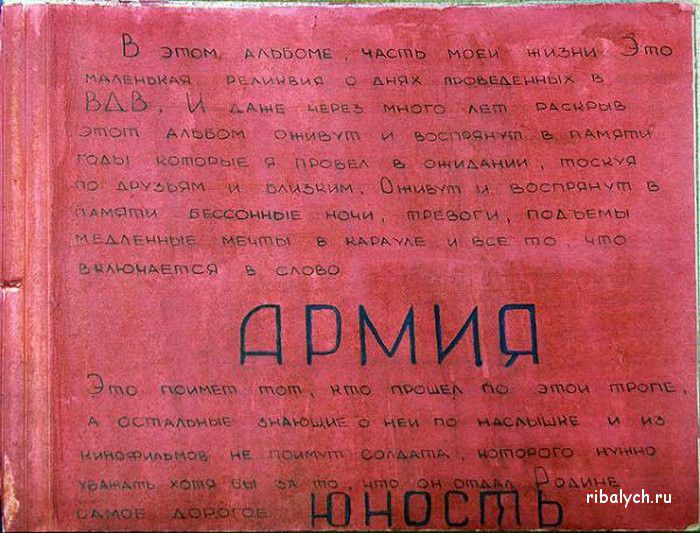 В этом альбоме, часть моей жизни. Это
маленькая реликвия о днях проведенных в
ВДВ. И даже через много лет раскрыв
этот альбом оживут и воспрянут в памяти
годы которые я провел в ожидании, тоскуя
по друзьям и близким. Оживут и воспрянут в
памяти бессонные ночи, тревоги, подъемы
медленные мечты в карауле и все то, что
включается в слово
АРМИЯ
Это поимет тот, кто прошел по этои тропе,
а остальные знающие о неи по наслышке и из
кинофильмов не поимут солдата, которого нужно
уважать хотя бы за то, что он отдал Родине
самое дорогое ЮНОСТЬ
ribalych.ru